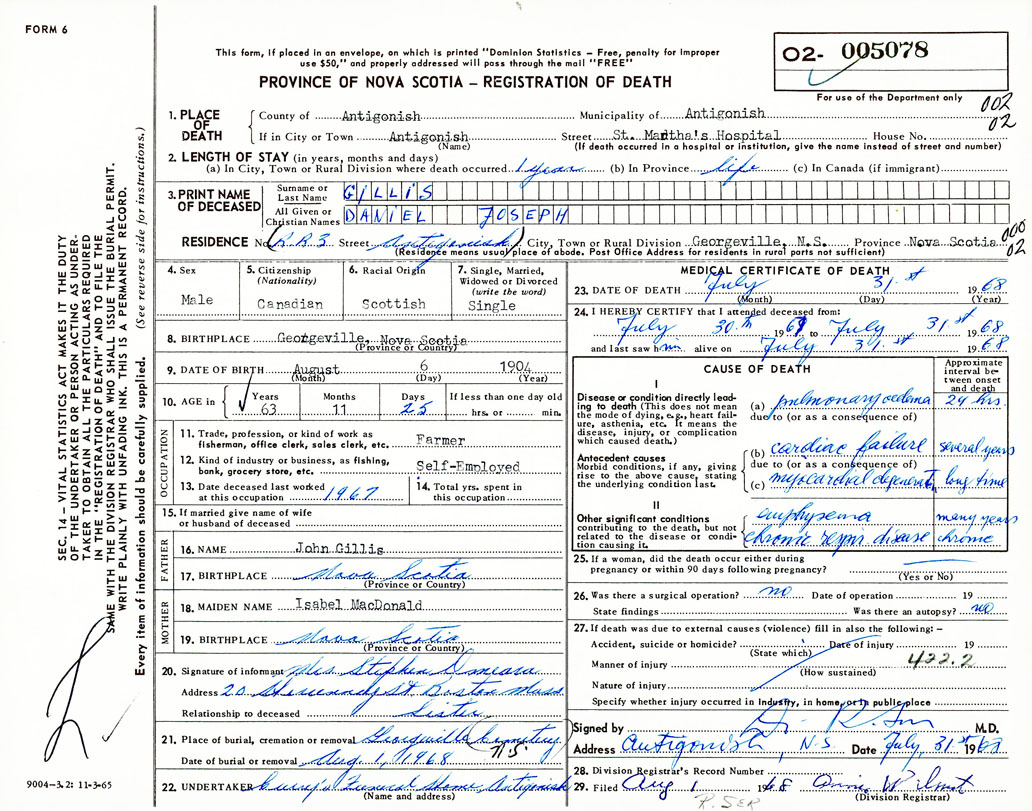 FORM 6
This form, if placed in an envelope, on which is printed "Dominion Statistics – Free, penalty for improper
use $50," and properly addressed will pass through the mail "FREE"
PROVINCE OF NOVA SCOTIA – REGISTRATION OF DEATH
02- 005078
For use of the Department only
002
02
1. PLACE OF DEATH
County of Antigonish Municipality of Antigonish
If in City or Town Antigonish Street St. Martha's Hospital House No.
(Name) (If death occurred in a hospital or institution, give the name instead of street and number)
2. LENGTH OF STAY (in years, months and days)
(a) In City, Town or Rural Division where death occurred 1 year (b) In Province life (c) In Canada (if immigrant)
3. PRINT NAME OF DECEASED
Surname or Last Name GILLIS
All Given or Christian Names DANIEL JOSEPH
RESIDENCE No. R.R.3 Street Antigonish City, Town or Rural Division Georgeville, N.S. Province Nova Scotia
(Residence means usual place of abode. Post Office Address for residents in rural parts not sufficient)
000
02
4. Sex
Male
5. Citizenship
(Nationality)
Canadian
6. Racial Origin
Scottish
7. Single, Married,
Widowed or Divorced
(write the word)
Single
8. BIRTHPLACE Georgeville, Nova Scotia
(Province or Country)
9. DATE OF BIRTH August 6 1904
(Month) (Day) (Year)
10. AGE in
Years Months Days If less than one day old
63 11 25 hrs. or min.
OCCUPATION
11. Trade, profession, or kind of work as
fisherman, office clerk, sales clerk, etc. Farmer
12. Kind of industry or business, as fishing,
bank, grocery store, etc. Self-Employed
13. Date deceased last worked
at this occupation 1967
14. Total yrs. spent in
this occupation
15. If married give name of wife
or husband of deceased
FATHER
16. NAME John Gillis
17. BIRTHPLACE Nova Scotia
(Province or Country)
MOTHER
18. MAIDEN NAME Isabel MacDonald
19. BIRTHPLACE Nova Scotia
(Province or Country)
20. Signature of informant Mrs. Stephen
Address 20 St Boston Mass.
Relationship to deceased Sister
21. Place of burial, cremation or removal Georgeville Cemetery
N.S.
Date of burial or removal Aug. 1, 1968
22. UNDERTAKER Funeral Home, Antigonish
(Name and address)
MEDICAL CERTIFICATE OF DEATH
23. DATE OF DEATH July 31.st 1968
(Month) (Day) (Year)
24. I HEREBY CERTIFY that I attended deceased from:
July 30.th 1968 to July 31st 1968
and last saw him alive on July 31.st 1968
CAUSE OF DEATH
Approximate
interval be-
tween onset
and death
I
Disease or condition directly lead-
ing to death (This does not mean
the mode of dying, e.g., heart fail-
ure, asthenia, etc. It means the
disease, injury, or complication
which caused death.)
(a) pulmonary oedema 24 hrs.
due to (or as a consequence of)
Antecedent causes
Morbid conditions, if any, giving
rise to the above cause, stating
the underlying condition last.
(b) cardiac failure several years
due to (or as a consequence of)
(c) myocardial degenerat. long time
II
Other significant conditions
contributing to the death, but not
related to the disease or condi-
tion causing it.
emphysema many years
chronic respir disease chronic
25. If a woman, did the death occur either during
pregnancy or within 90 days following pregnancy?
(Yes or No)
26. Was there a surgical operation? no Date of operation 19
State findings Was there an autopsy? no
27. If death was due to external causes (violence) fill in also the following: –
Accident, suicide or homicide? Date of injury 19
(State which)
422.2
Manner of injury
(How sustained)
Nature of injury
Specify whether injury occurred in industry, in home, or in public place
Signed by M.D.
Address Antigonish, N.S. Date July, 31st 1968
28. Division Registrar's Record Number
29. Filed Aug 1 1968
(Division Registrar)
SEC. 14 – VITAL STATISTICS ACT MAKES IT THE DUTY
OF THE UNDERTAKER OR PERSON ACTING AS UNDER-
TAKER TO OBTAIN ALL THE PARTICULARS REQUIRED
IN THE "REGISTRATION OF DEATH" AND TO FILE THE
SAME WITH THE DIVISION REGISTRAR WHO SHALL ISSUE THE BURIAL PERMIT.
WRITE PLAINLY WITH UNFADING INK. THIS IS A PERMANENT RECORD.
Every item of information should be carefully supplied. (See reverse side for instructions.)
9004-3.2: 11-3-65